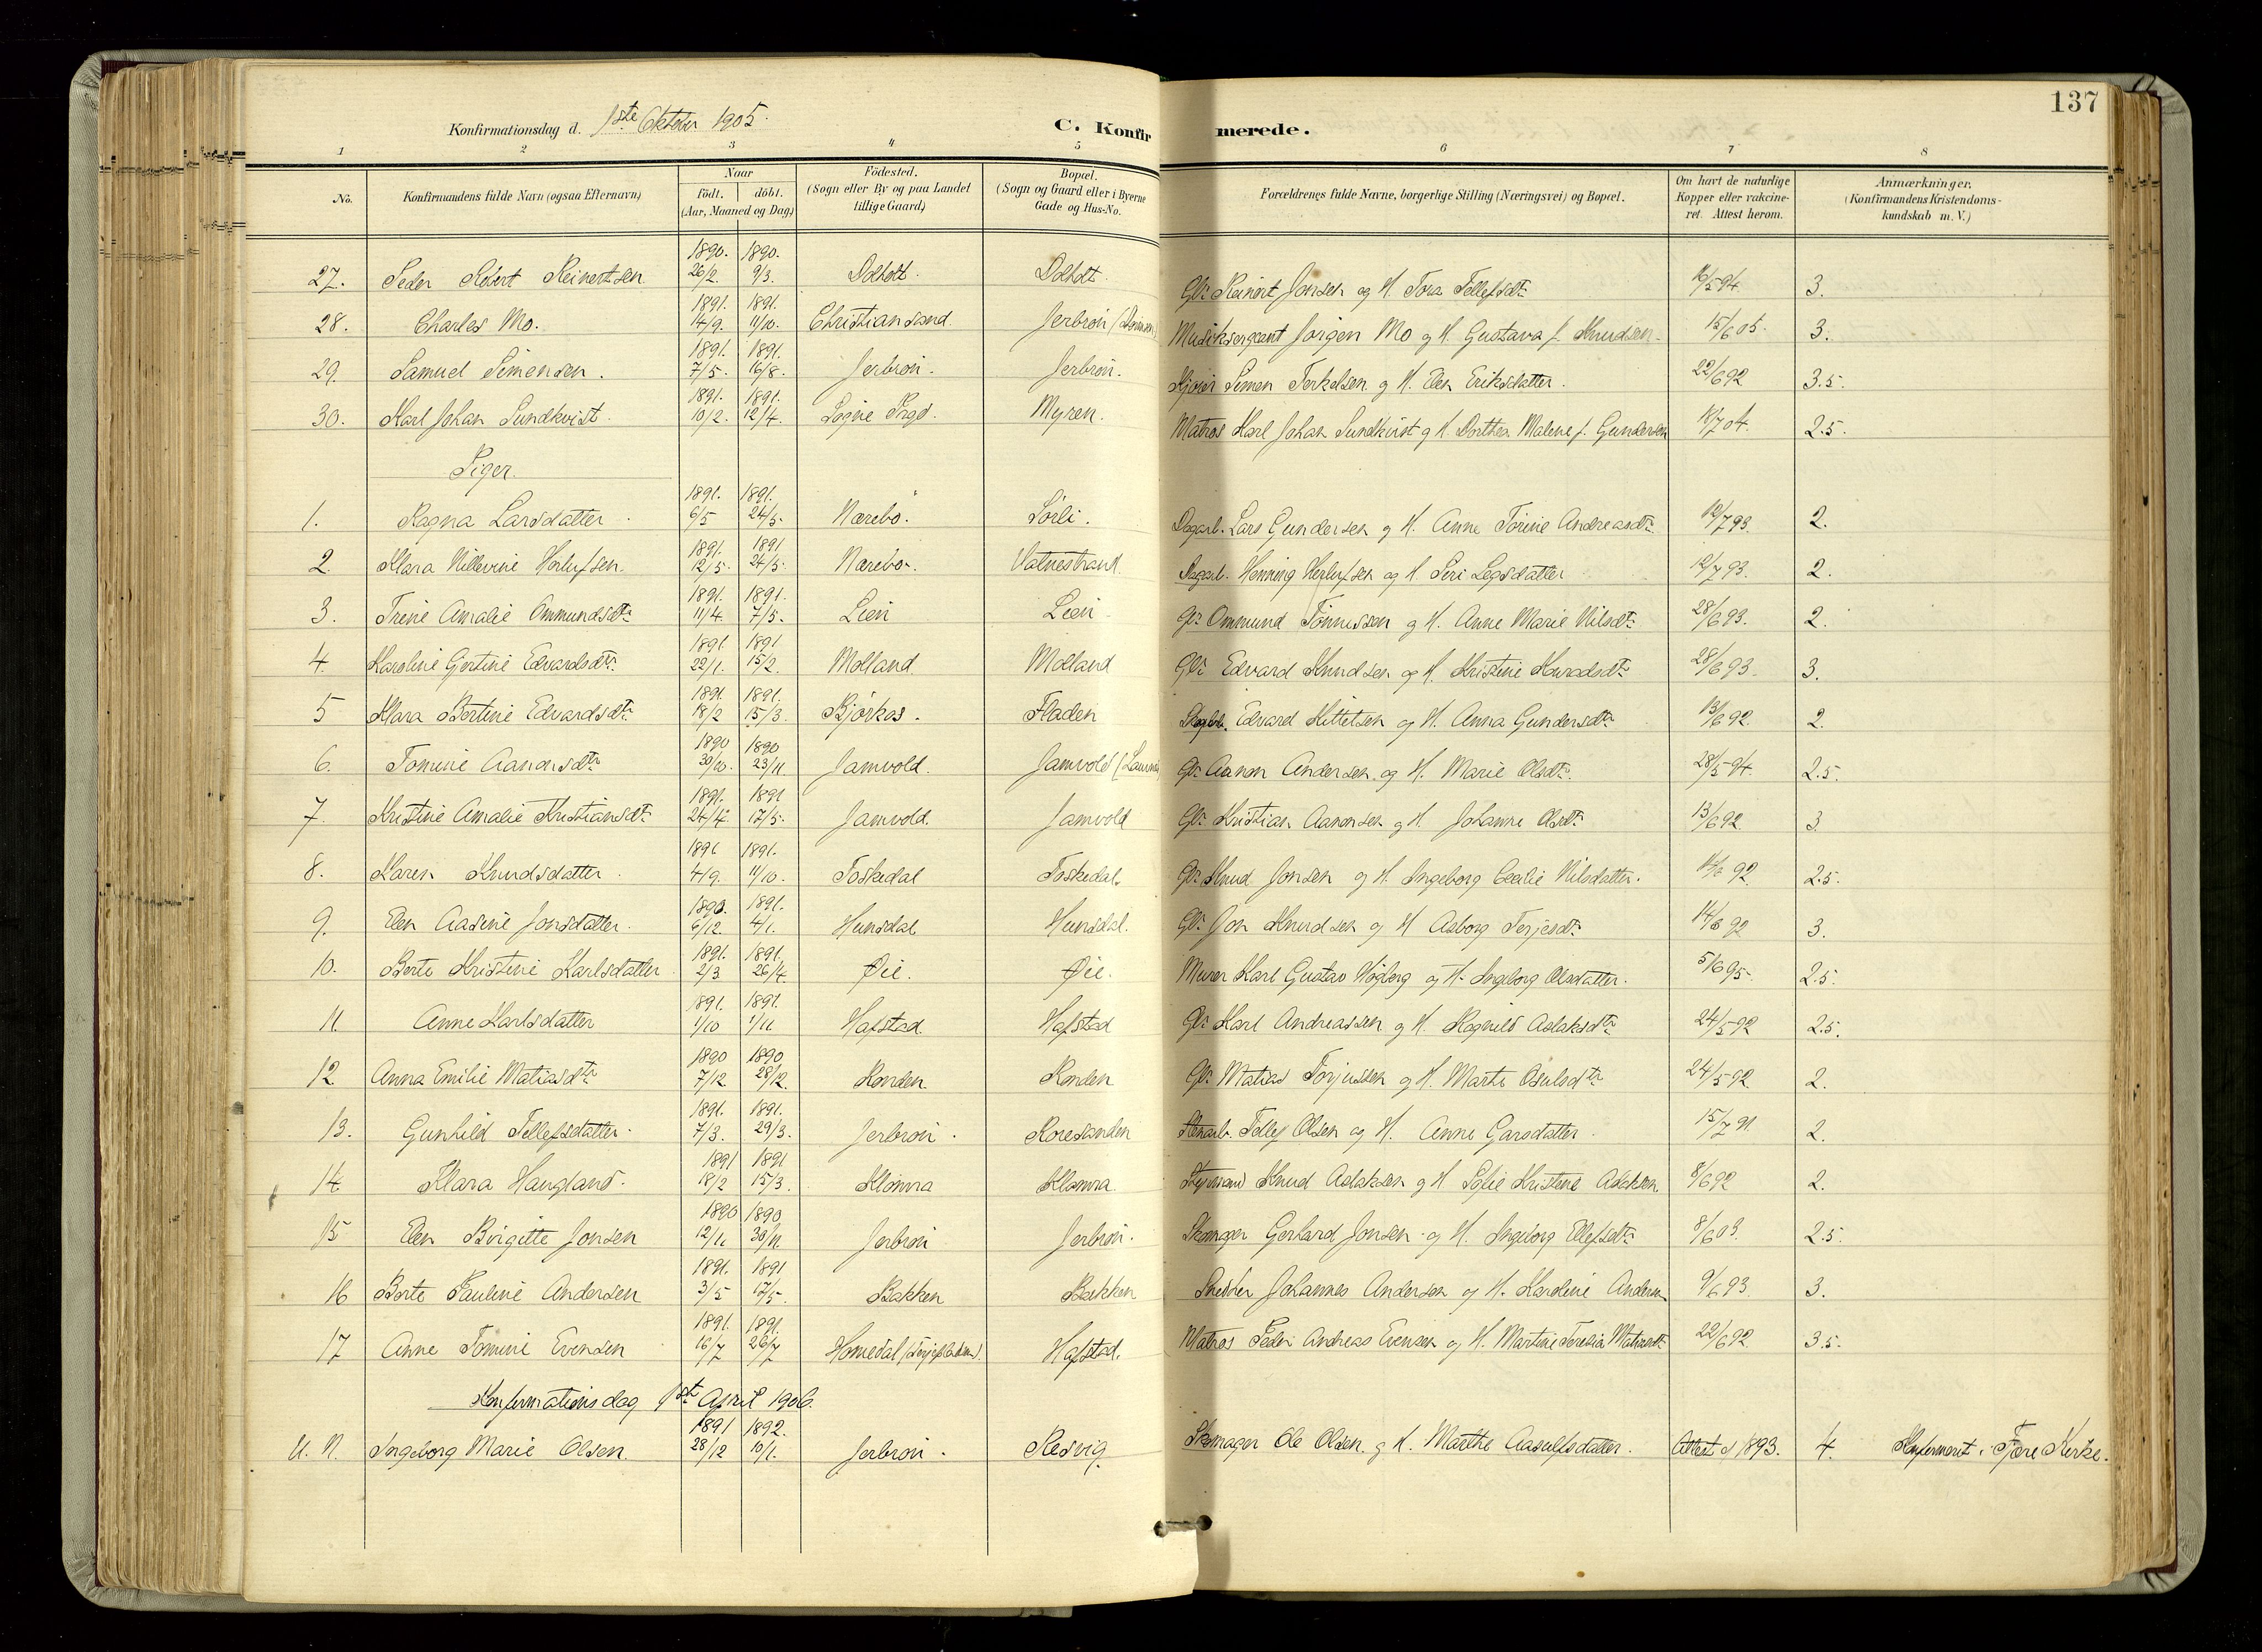 137
Konfirmationsdag d. 1ste Oktober 1905.
C. Konfirmerede.
1 2 3 4 5 6 7 8
No. Konfirmandens fulde Navn (ogsaa Efternavn) Naar födt. döbt. (Aar, Maaned og Dag) Födested. (Sogn eller By og paa Landet tillige Gaard) Bopæl. (Sogn og Gaard eller i Byerne Gade og Hus-No. Forældrenes fulde Navne, borgerlige Stilling (Næringsvei) og Bopæl. Om havt de naturlige Kopper eller vakcineret. Attest herom. Anmærkninger, (Konfirmandens Kristendomskundskab m. V.)
27. Peder Robert Reinertsen 1890. 26/2. 1890. 9/3. Dolholt. Dolholt. Gbr. Reinert Jensen og H. Tora Tellefsdtr 16/5 94. 3.
28. Charles Mo. 1891. 14/9. 1891. 11/10. Christiansand. Jerbroii Musiksergeant Jørgen Mo og H. Gustava f. Knudsen. 15/6 05. 3.
29. Samuel Simonsen. 1891. 7/5. 1891. 16/8. Jerbroii. Jerbroii. Simon Terkelsen og H. Elen Eriksdatter. 22/6 92 3.5.
30. Karl Johan Sundkvist. 1891. 10/2. 1891. 12/4. Søgne Myren. Matros Karl Johan Sundkvist og H. Dorthea Malene f. Gundersen 18/7 04. 2.5.
Piger.
1. Ragna Larsdatter. 1891. 6/5 1891. 24/5. Nærebø. Sørli. Dagarb. Lars Gundersen og H. Anne Torine Andreasdtr. 12/7 93. 2.
2. Klara Nillevine Herlufsen. 1891. 12/5. 1891 24/5. Nærebø. Vatnestrand. Dagarb. Henning Herlufsen og H. Siri Legsdatter 12/7 93. 2.
3. Trine Amalie Ommundsdtr 1891. 11/4. 1891. 7/5. Lien Lien Gbr Ommund Tønnessen og H. Anne Marie Nilsdtr 28/6 93. 2.
4 Karoline Gertine Edvardsdtr. 1891 22/1. 1891 15/2. Molland. Molland Gbr Edvard Knudsen og H. Kristine Konradsdtr 28/6 93. 3.
5 Klara Bertine Edvardsdtr. 1891. 18/2 1891. 15/3. Bjørkos. Fladen Edvard Kittelsen og H. Anna Gundersdtr. 13/6 92. 2.
6. Tomine Aanonsdtr 1890 30/10. 1890 23/11. Jamvold. Jamvold Gbr Aanon Andersen og H. Marie Olsdtr. 28/5 94. 2.5.
7. Kristine Amalie Kristiansdtr 1891. 24/4. 1891 17/5. Jamvold. Jamvold Gbr Kristian Aanonsen og H. Johanne Olsdtr. 13/6 92. 3.
8. Karen Knudsdatter. 1891 4/9. 1891. 11/10. Toskedal Toskedal. Gbr. Knud Jonsen og H. Ingeborg Cecilie Nilsdatter. 14/6 92. 2.5.
9. Elen Aasine Jonsdatter. 1890. 6/12. 1891. 4/1. Hunsdal Hunsdal. Gbr. Jon Knudsen og H Asborg Terjesdtr. 14/6 92 3.
10. Berte Kristine Karlsdatter. 1891. 2/3 1891. 26/4 Øie. Øie. Murer Karl Gustav Högberg og H. Ingeborg Olsdatter. 5/6 95. 2.5.
11. Anne Karlsdatter 1891. 1/10 1891. 1/11 Hafstad. Hafstad Gbr Karl Andreassen og H. Ragnild Aslaksdtr 24/5 92 2.5.
12. Anna Emilie Matiasdtr 1890 7/12 1890 28/12. Ronden. Ronden Gbr Matias Torjussen og H. Marte Osulsdtr 24/5 92 2.
13. Gunhild Tellefsdatter. 1891. 7/3. 1891. 29/3. Jerbroii. Roresanden Stenarb. Tellef Olsen og H. Anne Garsdatter. 15/7 91. 2.
14 Klara Haugland. 1891 18/2 1891 15/3. Klomra Klomra. Styrmand Knud Aslaksen og H Sofie Kristene Aslaksen. 8/6 92 2.
15 Elen Birgitte Jonsen 1890 12/11 1890 30/11. Jerbroii Jerbroii. Skomager Gerhard Jonsen og H. Ingeborg Ellefsdtr 8/6 03. 2.5.
16 Berte Pauline Andersen 1891. 3/5 1891 17/5. Bakken Bakken Snedker Johannes Andersen og H. Karoline Andersen 9/6 93. 3.
17 Anne Tomine Evensen 1891. 16/7 1891. 26/7 Homedal Hafstad. Matros Peder Andreas Evensen og H. Martine Teresia 22/6 92. 3.5.
Konfirmationsdag 1ste April 1906.
U. N. Ingeborg Marie Olsen. 1891 28/12 1892. 10/1. Jerbroii. Resvig Skomager Ole Olsen og H. Marthe Aasulfsdatter. Attest d 1893. 4. Konfirmeret i Fjære Kirke.